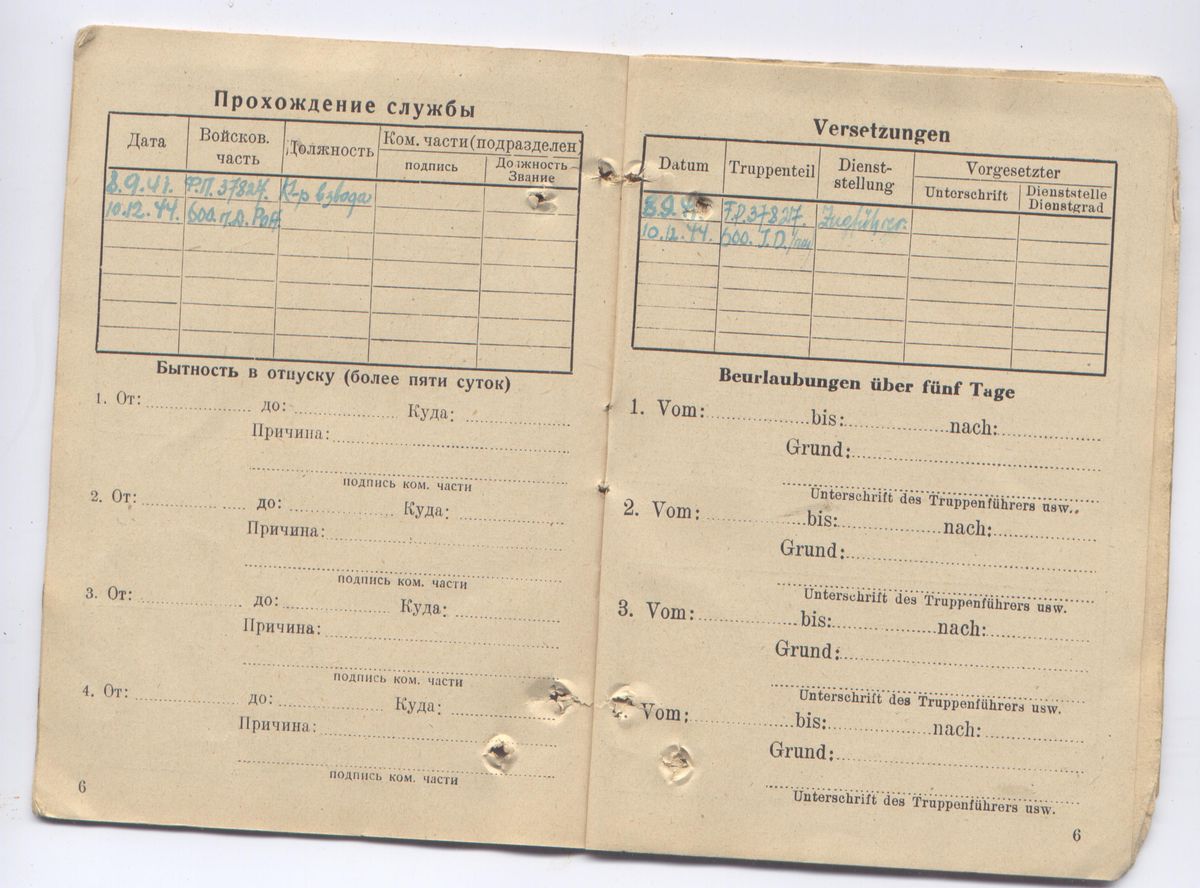 Прохождение службы
Дата Войсков. часть Должность Ком. части (подразделен)
подпись Должность Звание
8.9.41. Ф.П. 37827. К-р взвода
10.12.44. 600. п.д. РОА
Бытность в отпуску (более пяти суток)
1. От: до: Куда:
Причина:
подпись ком. части
2. От: до: Куда:
Причина:
подпись ком. части
3. От: до: Куда:
Причина:
подпись ком. части
4. От: до: Куда:
Причина:
подпись ком. части
6
Versetzungen
Datum Truppenteil Dienst-stellung Vorgesetzter
Unterschrift Dienststelle Dienstgrad
8.9. F.P. 37827. Zugführer.
10.12.44. 600. I.D.
Beurlaubungen über fünf Tage
1. Vom: bis: nach:
Grund:
Unterschrift des Truppenführers usw.
2. Vom: bis: nach:
Grund:
Unterschrift des Truppenführers usw.
3. Vom: bis: nach:
Grund:
Unterschrift des Truppenführers usw.
Vom: bis: nach:
Grund:
Unterschrift des Truppenführers usw.
6